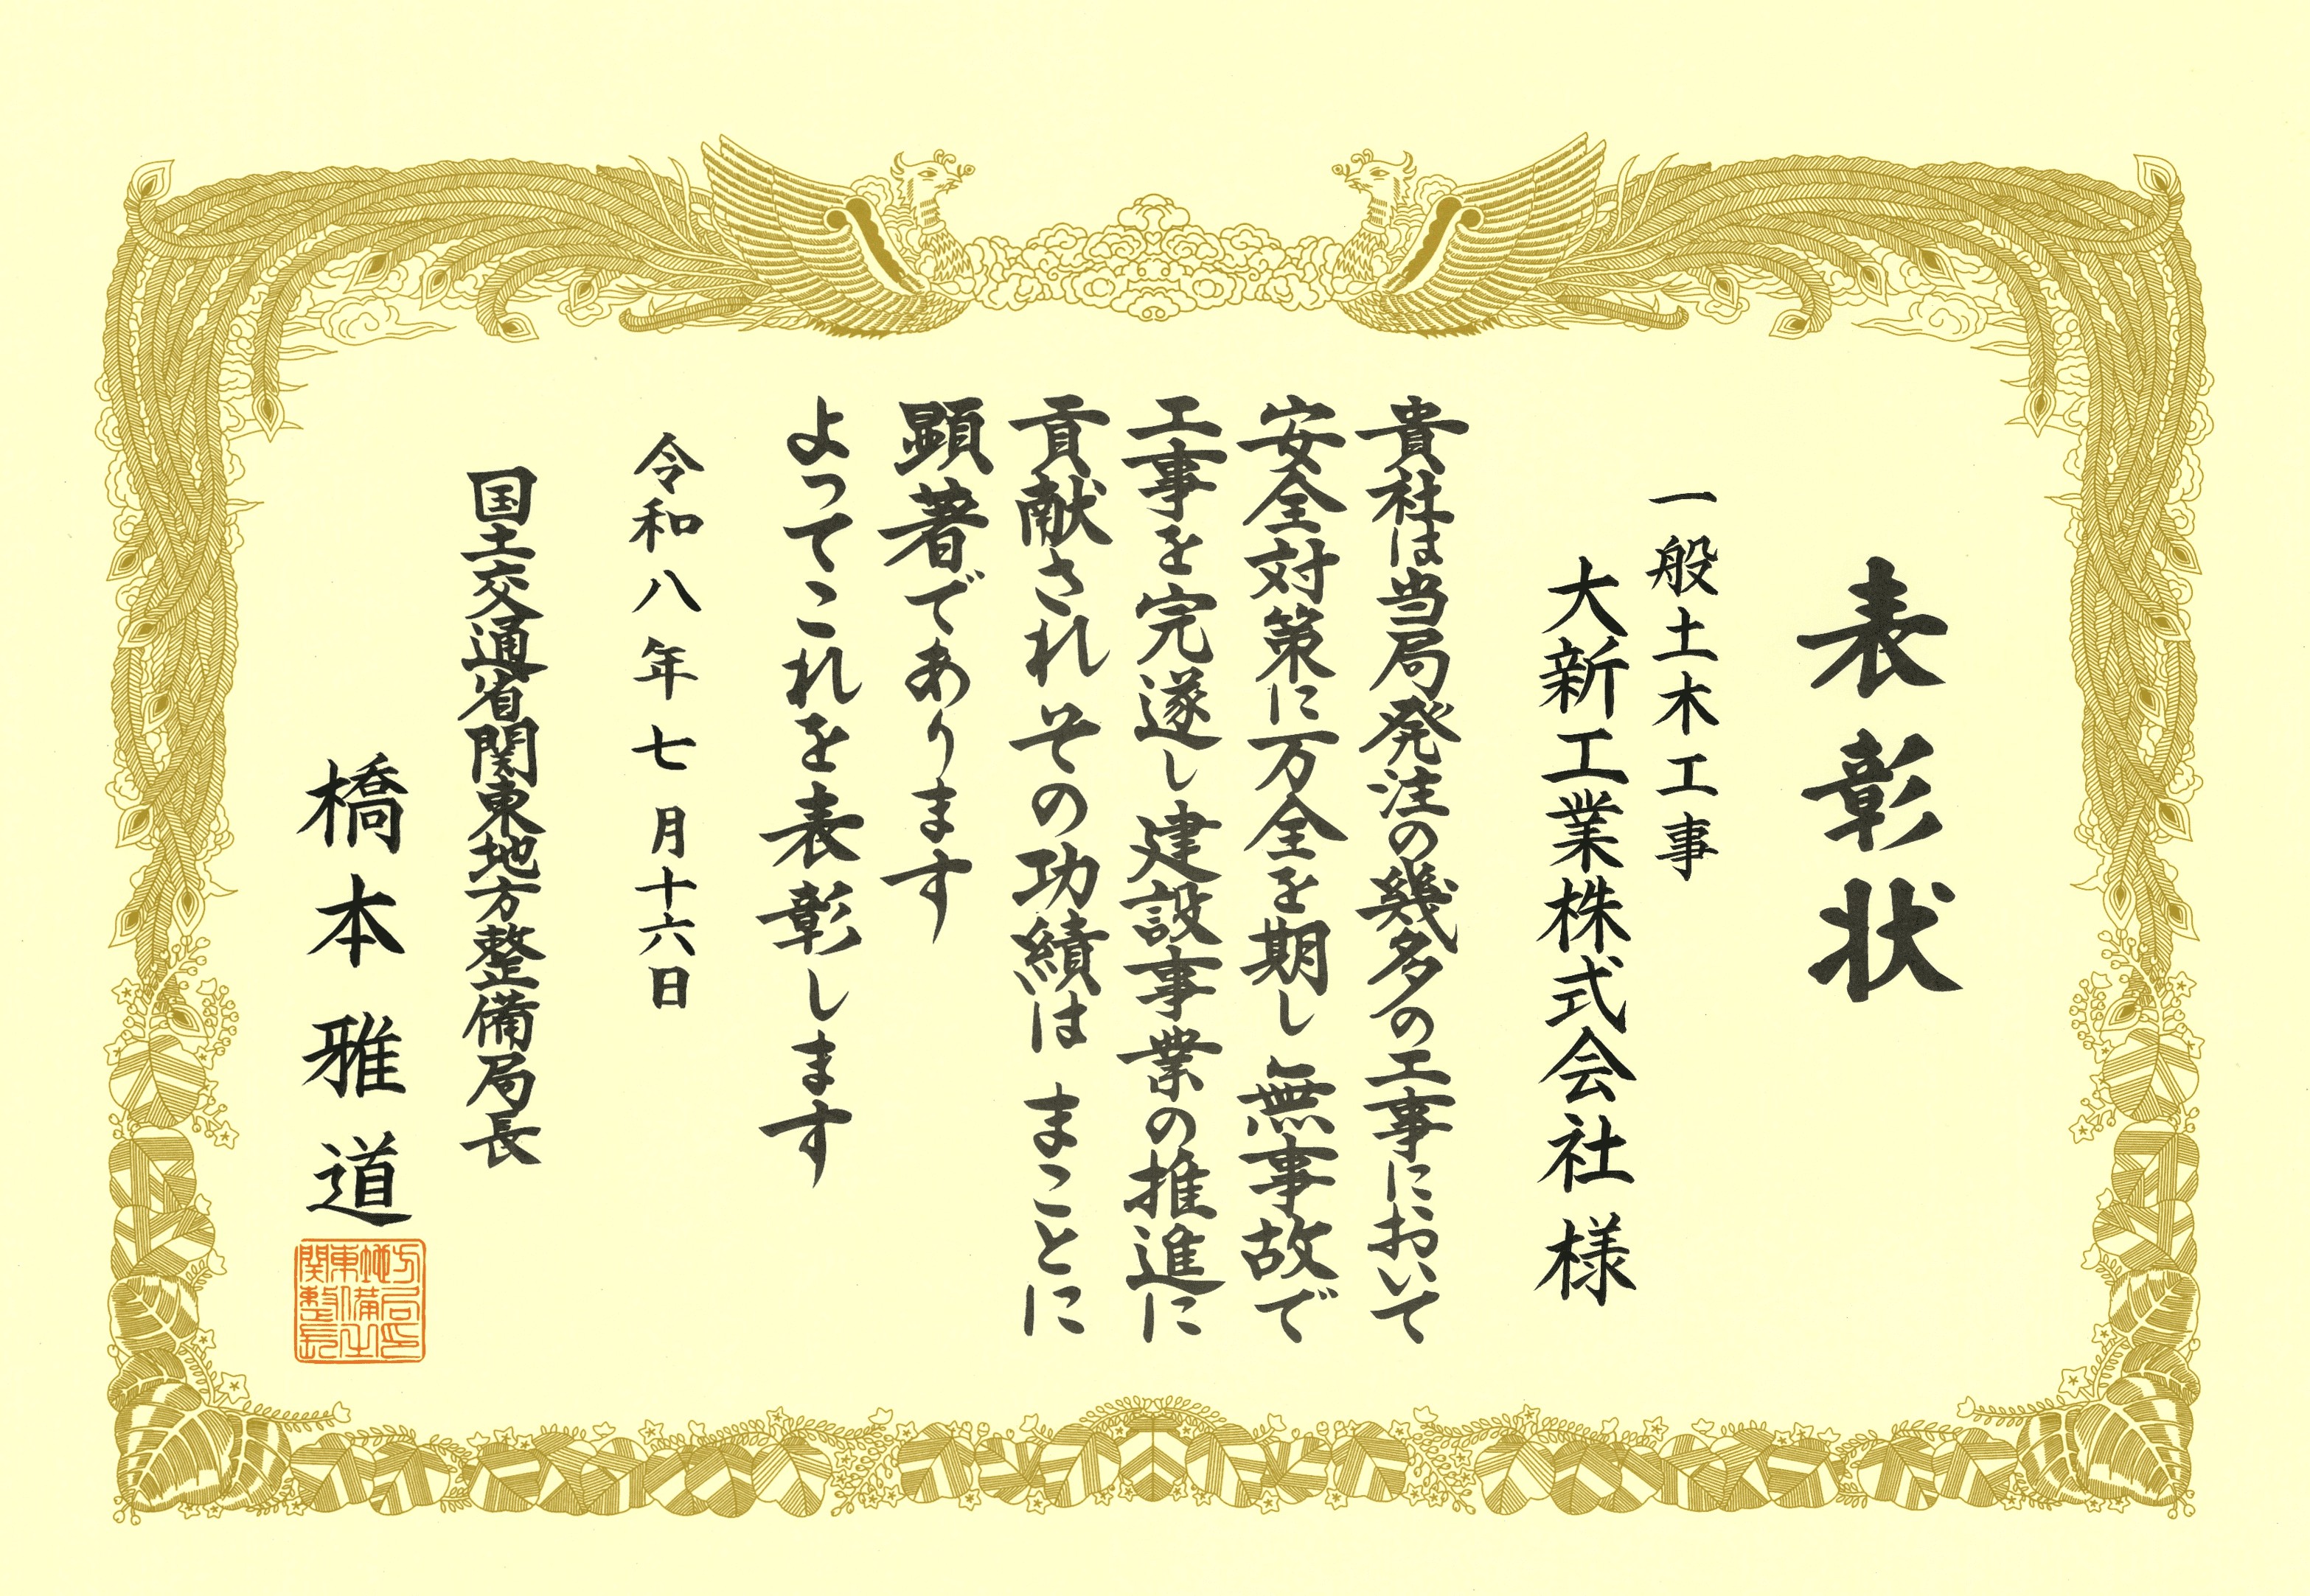 表彰状
一般土木工事
大新工業株式会社 様
貴社は当局発注の幾多の工事において
安全対策に万全を期し 無事故で
工事を完遂し 建設事業の推進に
貢献され その功績は まことに
顕著であります
よってこれを表彰します
令和八年七月十六日
国土交通省関東地方整備局長
橋本雅道
関東地方整備局長之印